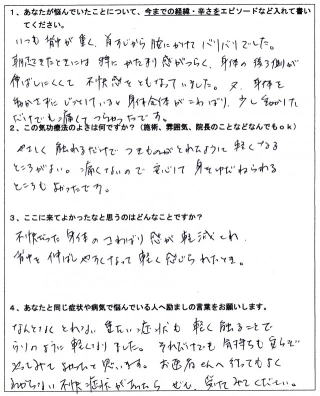 1、あなたが悩んでいたことについて、今までの経緯・辛さをエピソードなど入れて書い
てください。
いつも背中が重く、首すじから腰にかけてバリバリでした。
朝起きたときには特にかたまり感がつらく、身体の
伸ばしにくくて不快感をともなっていました。又、身体を
動かさずにじっとしていると身体全体がこわばり、少し動かした
だけでも痛くてつらかったです。
2、この気功療法のよさは何ですか？（施術、雰囲気、院長のことなどなんでもｏｋ）
やさしく触れるだけでつきものがとれたように軽くなる
ところがよい。痛くないので安心して身をゆだねられる
ところもよかったです。
3、ここに来てよかったなと思うのはどんなことですか？
不快だった身体のこわばり感が軽減され、
背中を伸ばしやすくなって軽く感じられたとき。
4、あなたと同じ症状や病気で悩んでいる人へ励ましの言葉をお願いします。
なんとなくとれない重たい症状も軽く触ることで
うそのように軽くなりました。それだけでも気持ちも
と思います。お医者さんへ行ってもよく
わからない不快症状があったら ぜひ、受けてみてください。